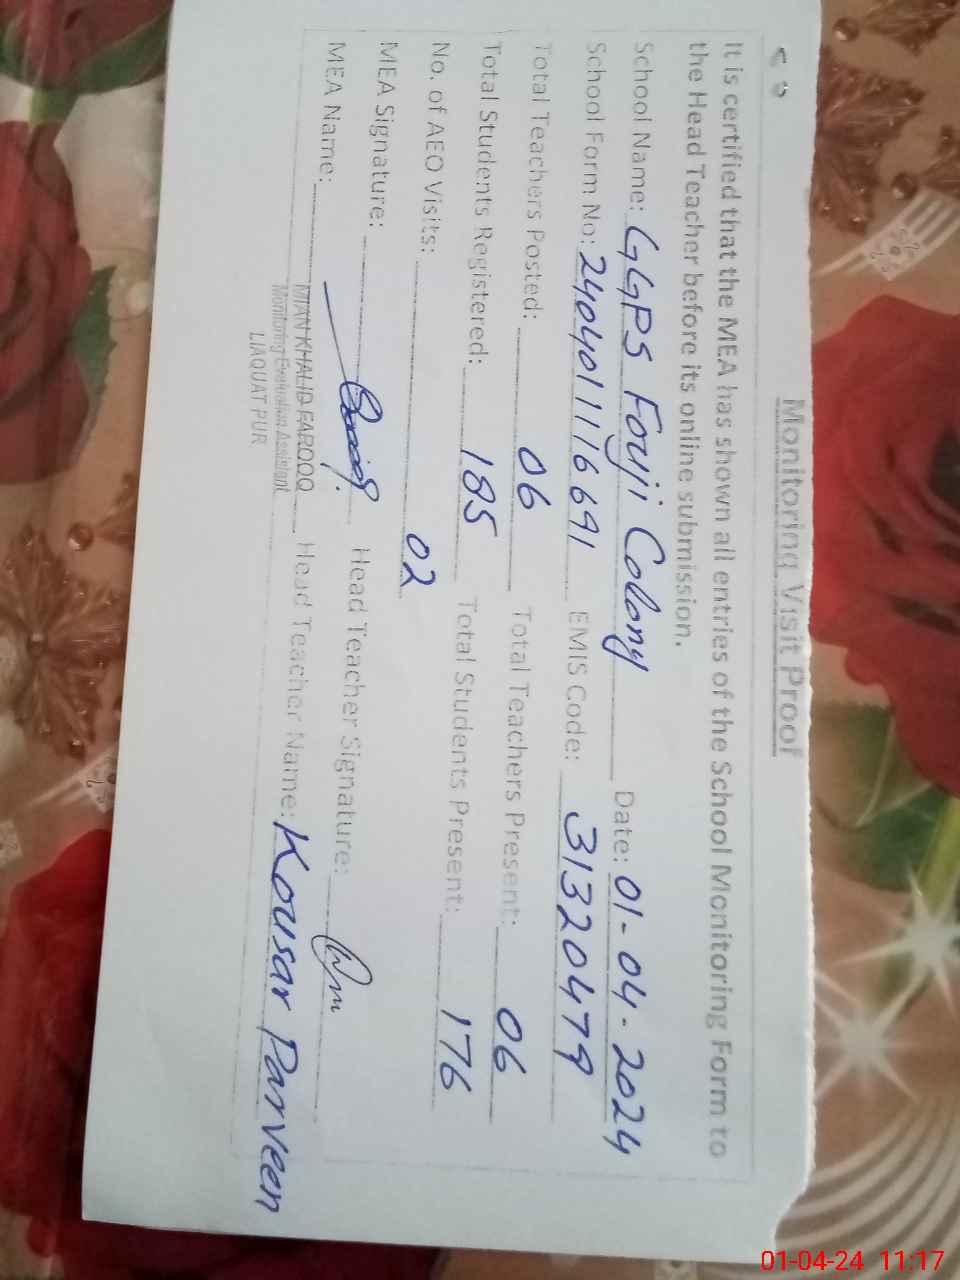 Monitoring Visit Proof
It is certified that the MEA has shown all entries of the School Monitoring Form to
the Head Teacher before its online submission.
School Name: GGPS Fouji Colony Date: 01-04-2024
School Form No: 240401116691 EMIS Code: 31320479
Total Teachers Posted: 06 Total Teachers Present: 06
Total Students Registered: 185 Total Students Present: 176
No. of AEO Visits: 02
MEA Signature: Head Teacher Signature:
MEA Name: MIAN KHALID FAROOQ Head Teacher Name: Kousar Parveen
Monitoring Evaluation Assistent
LIAQUAT PUR
01-04-24 11:17